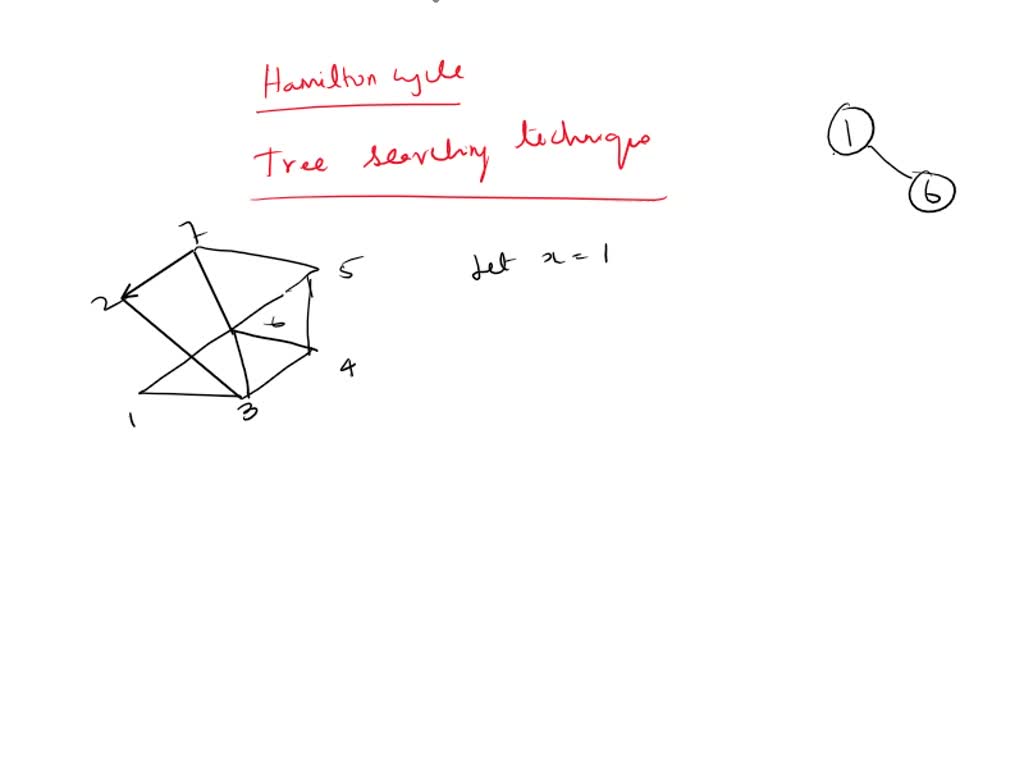 Hamilton cycle
Tree searching technique
1
6
7
2
5
6
4
1
3
Let x = 1